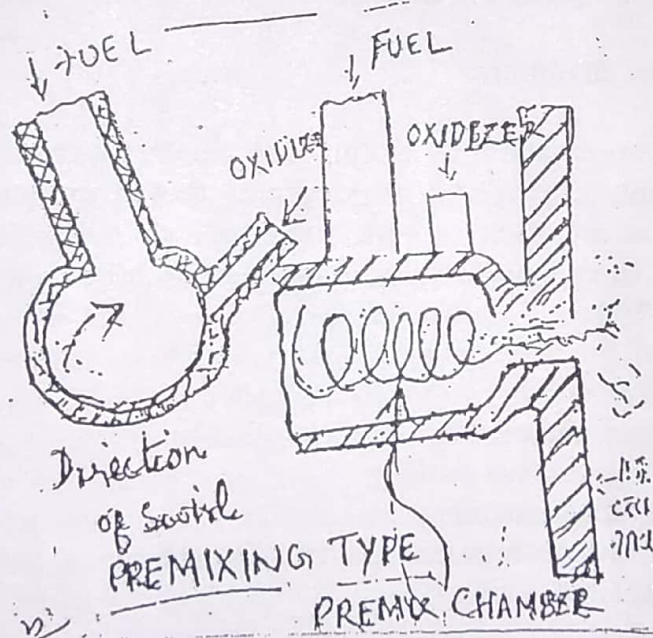 FUEL
FUEL
OXIDIZE
OXIDIZER
Direction
of Swirl
PREMIXING TYPE
PREMIX CHAMBER